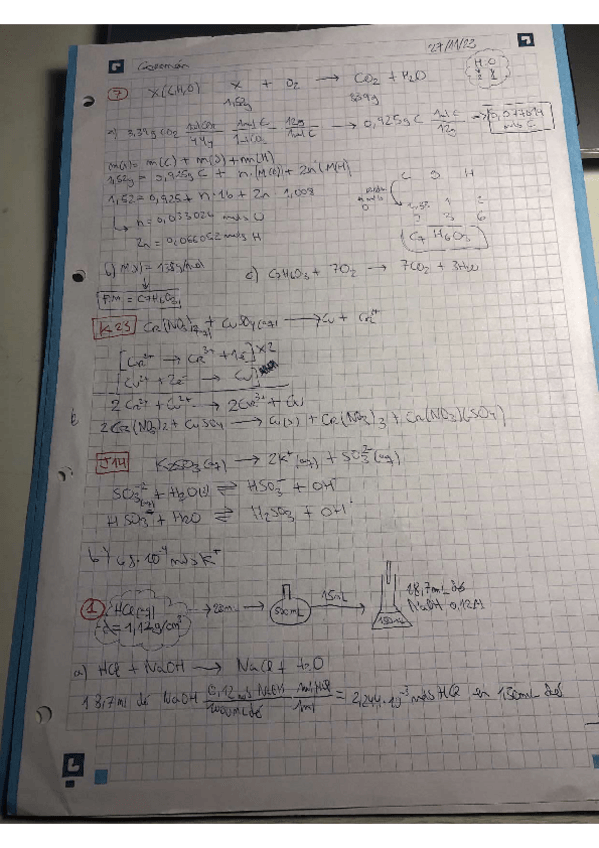 27/11/23
7 X(C,H,O) X + O2 → CO2 + H2O
1,52g 3,39g
H2O
2 8
a) 3,39g CO2 1mol CO2/44g 1mol C/1mol CO2 12g/1mol C → 0,925g C 1mol C/12g → 0,077014 mols C
m(x) = m(C) + m(O) + m(H)
1,52g = 0,925g C + n·M(O) + 2n(M(H)
1,52 = 0,925 + n·16 + 2n 1,008
C O H
1 2
7 3 6
C7H6O3
→ n = 0,033026 mols O
2n = 0,066052 mols H
b) M(x) = 138g/mol
FM = C7H6O3
c) C7H6O3 + 7O2 → 7CO2 + 3H2O
K23 Cr(NO3)2(aq) + CuSO4(aq) → Cu + Cr3+
[Cr2+ → Cr3+ + 1e-] x2
[Cu2+ + 2e- → Cu]
2Cr2+ + Cu2+ → 2Cr3+ + Cu
2Cr(NO3)2 + CuSO4 → Cu(s) + Cr(NO3)3 + Cr(NO3)(SO4)
J14 K2SO3(aq) → 2K+(aq) + SO3 2-(aq)
SO3 2-(aq) + H2O(l) ⇌ HSO3- + OH-
HSO3- + H2O ⇌ H2SO3 + OH-
b) 6,8·10-4 mols K+
1 HCl(aq) d = 1,12g/cm3 → 500mL 15mL → 150mL
18,7mL dó NaOH 0,12M
a) HCl + NaOH → NaCl + H2O
18,7ml dó NaOH 0,12 mols NaOH/1000mL dó 1mol HCl/1mol = 2,244·10-3 mols HCl en 150mL dó